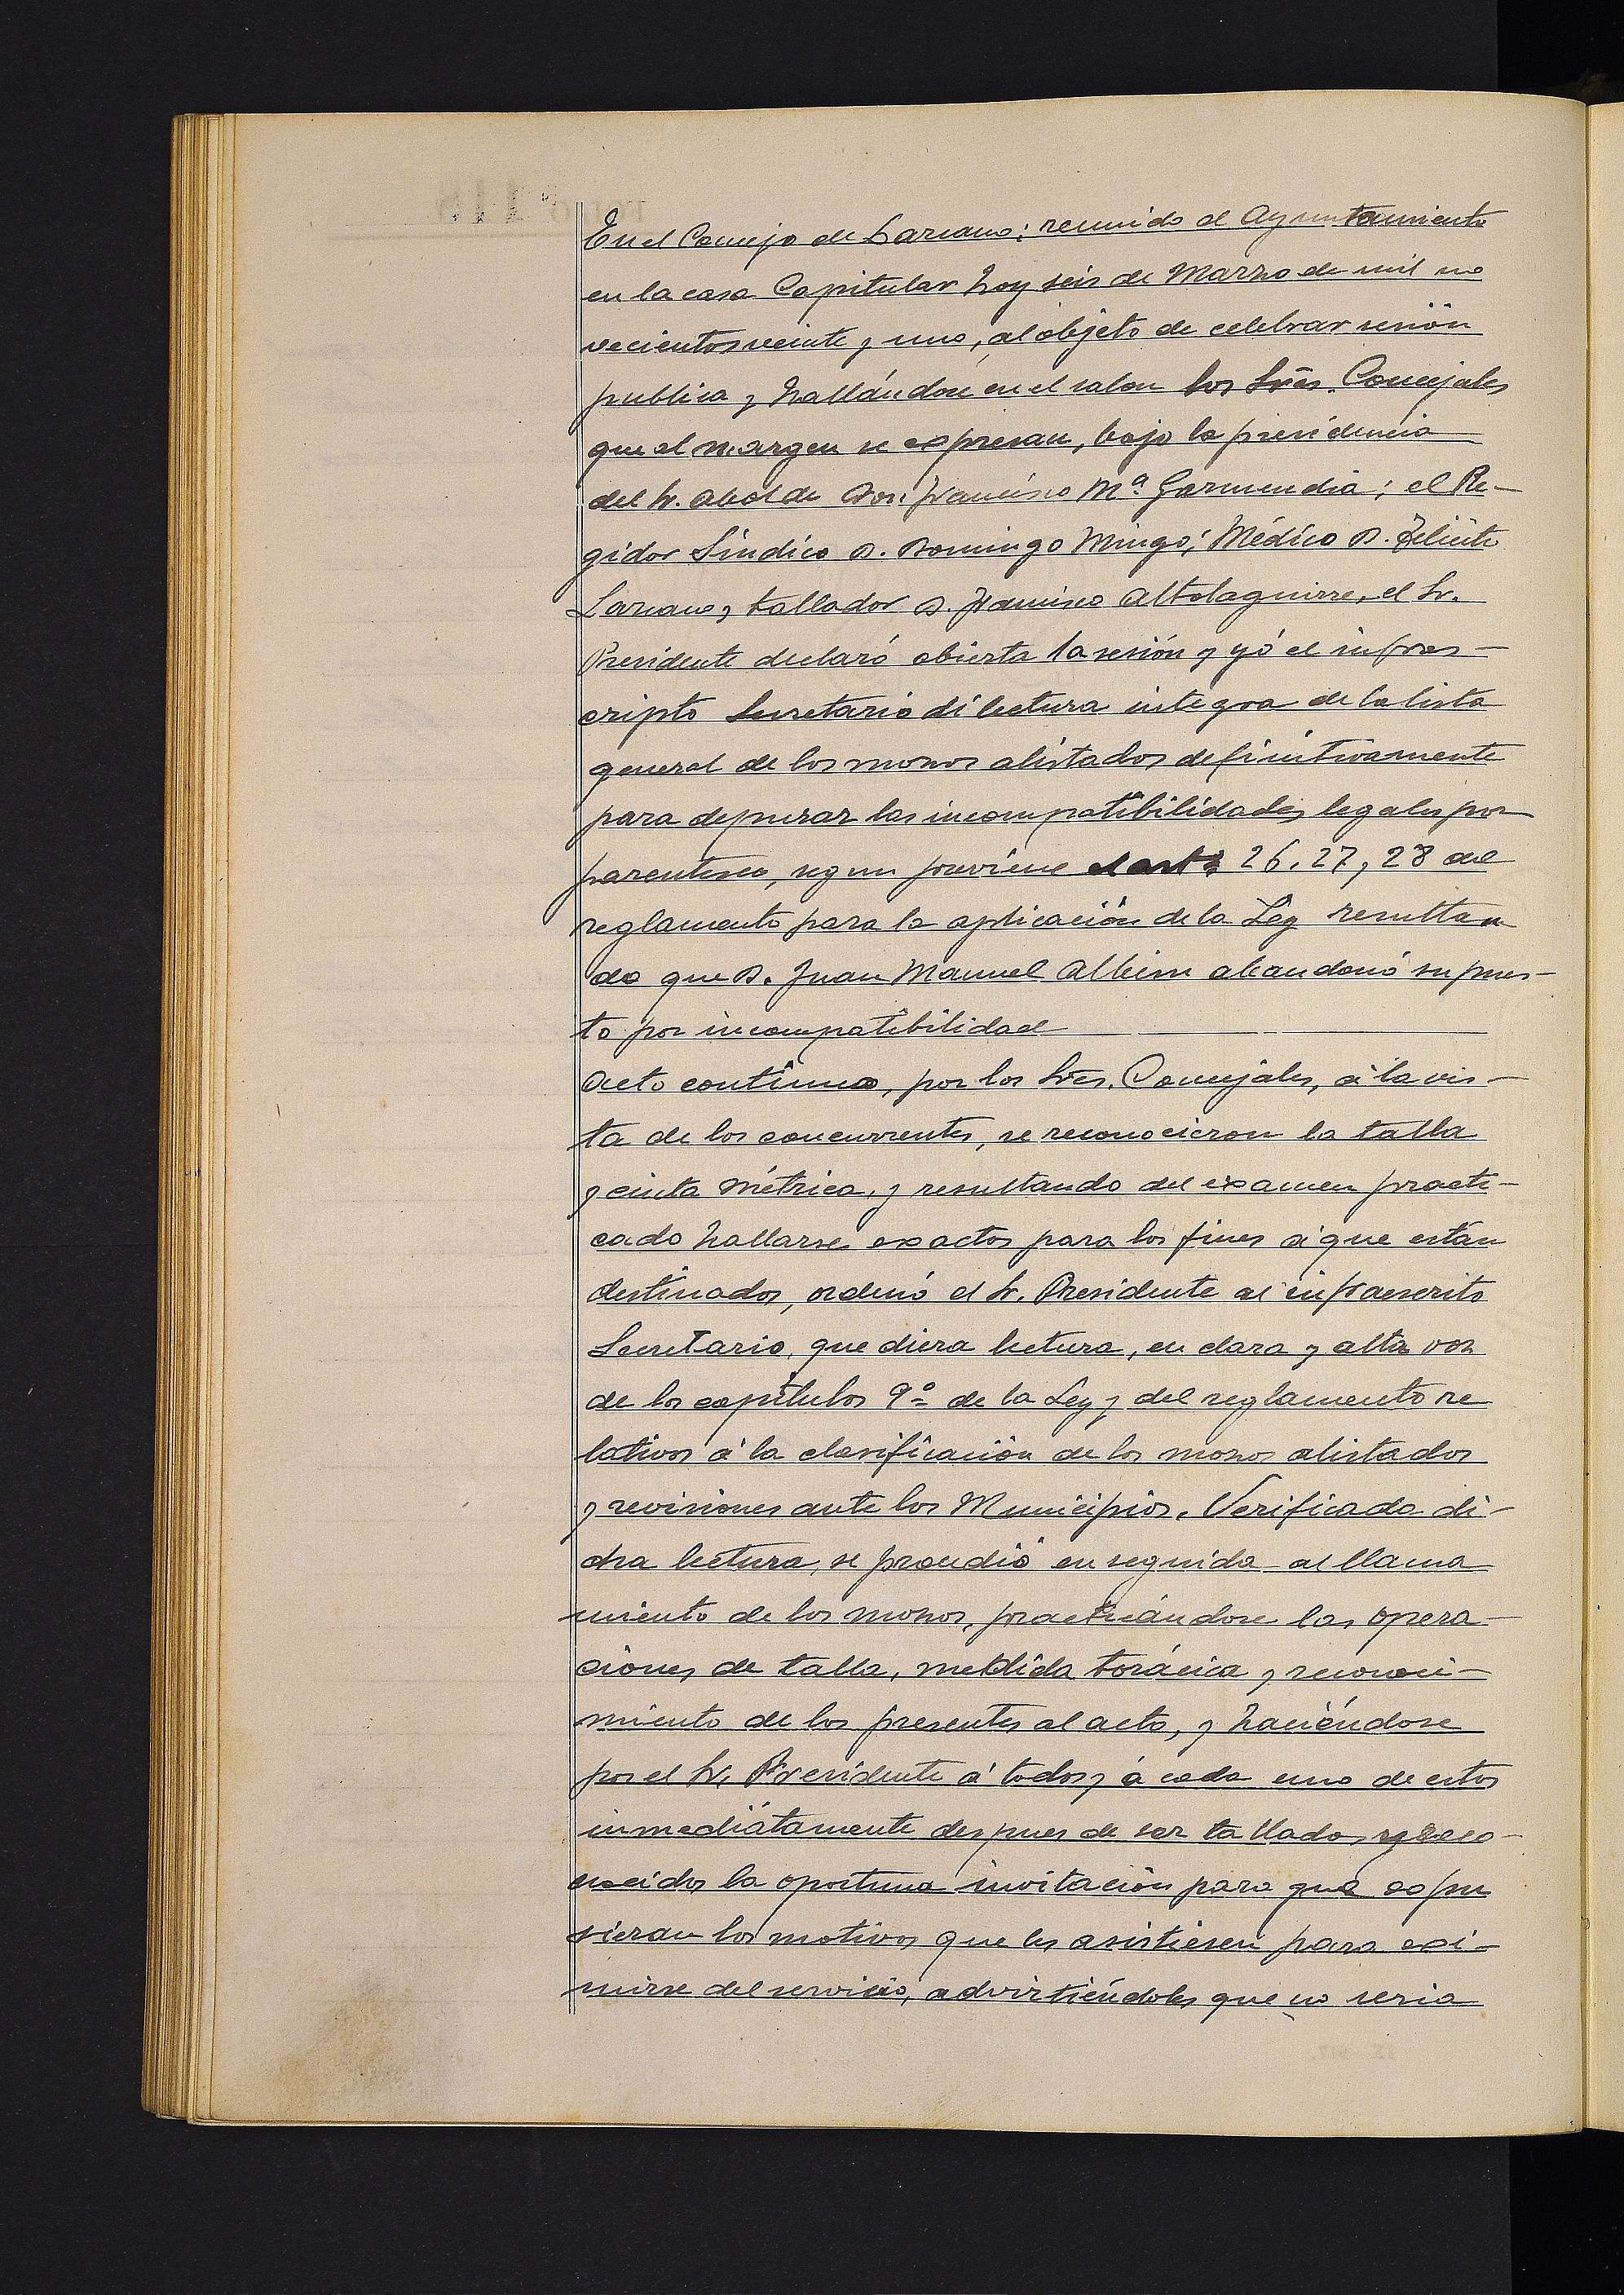 En el Concejo de Lazcano; reunido el Ayuntamiento
en la casa Capitular hoy seis de Marzo de mil no
vecientos veinte y uno, al objeto de celebrar sesión
publica y hallándose en el salon los Sres. Concejales
que al margen se expresan, bajo la presidencia
del Sr. Alcalde Don Francisco Mª Garmendia; el Re-
gidor Síndico D. Domingo Mingo; Médico D. Felicito
Lazcano y tallador D. Francisco Altolaguirre, el Sr.
Presidente declaró abierta la sesión y yó el infras-
cripto Secretario dí lectura integra de la lista
general de los mozos alistados definitivamente
para depurar las incompatibilidades legales por
parentesco, segun previene el art. 26, 27 y 28 del
reglamento para la aplicación de la Ley resultan
do que D. Juan Manuel Albisu abandonó su pues-
to por incompatibilidad
Acto contínuo, por los Sres. Concejales, á la vis-
ta de los concurrentes, se reconocieron la talla
y cinta métrica, y resultando del examen practi-
cado hallarse exactos para los fines á que están
destinados, ordenó el Sr. Presidente al infraescrito
Secretario, que diera lectura, en clara y alta voz
de los capítulos 9º de la Ley y del reglamento re
lativos á la clasificación de los mozos alistados
y revisiones ante los Municipios. Verificada di-
cha lectura, se procedió en seguida al llama
miento de los mozos, practicándose las opera-
ciones de talla, medida torácica y reconoci-
miento de los presentes al acto, y haciéndose
por el Sr. Presidente á todos y á cada uno de estos
inmediatamente despues de ser tallados y reco-
nocidos la oportuna invitación para que expu
sieran los motivos que les asistiesen para exi-
mirse del servicio, advirtiéndoles que no seria